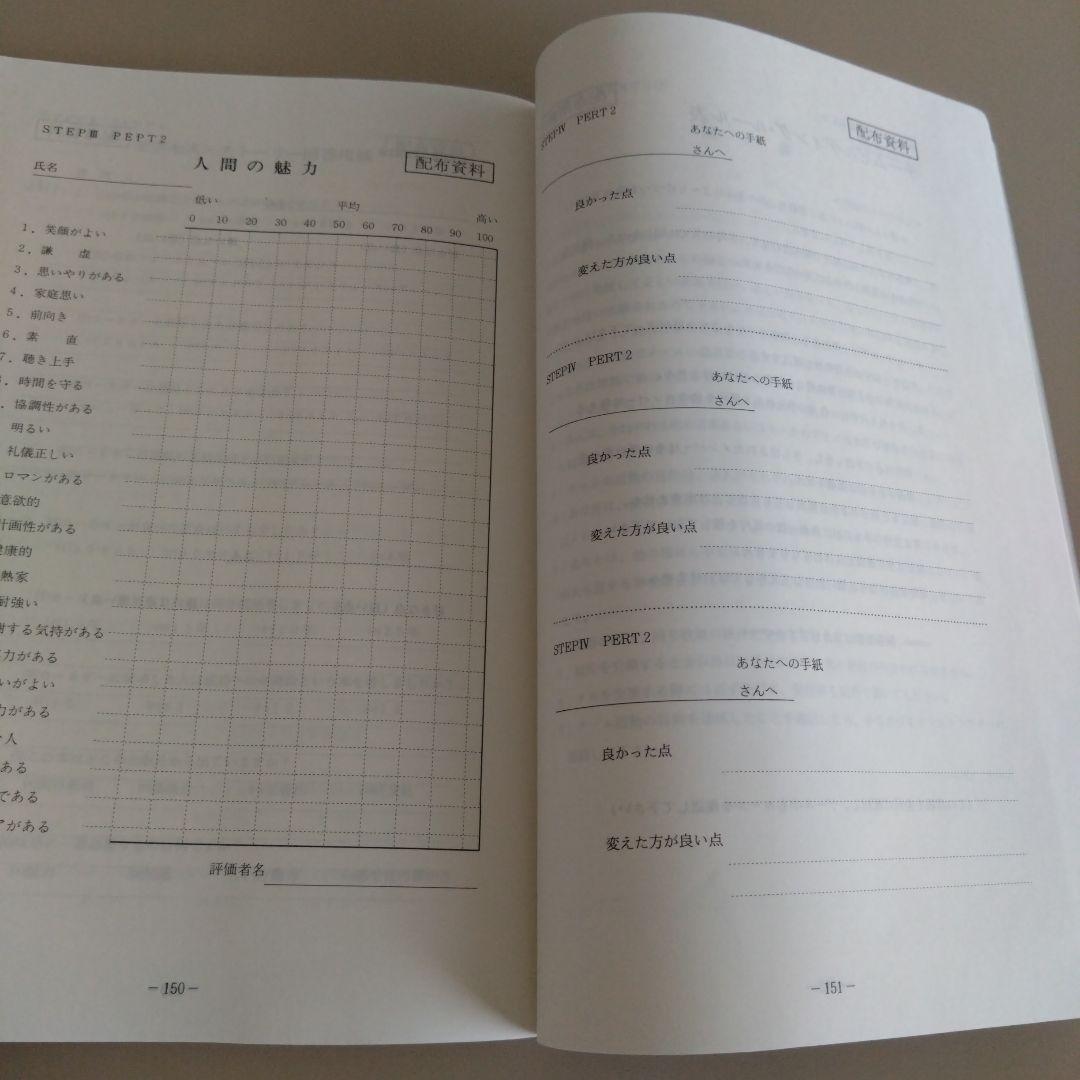 STEPⅢ PEPT2
人間の魅力
配布資料
氏名
低い 平均 高い
0 10 20 30 40 50 60 70 80 90 100
1．笑顔がよい
2．謙 虚
3．思いやりがある
4．家庭思い
5．前向き
6．素 直
7．聴き上手
．時間を守る
．協調性がある
明るい
礼儀正しい
ロマンがある
意欲的
計画性がある
健康的
熱家
耐強い
謝する気持がある
力がある
いがよい
力がある
人
ある
である
がある
評価者名
－150－
STEPⅣ PERT2
配布資料
あなたへの手紙
さんへ
良かった点
変えた方が良い点
STEPⅣ PERT2
あなたへの手紙
さんへ
良かった点
変えた方が良い点
STEPⅣ PERT2
あなたへの手紙
さんへ
良かった点
変えた方が良い点
－151－